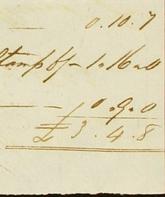 0.10.7
Stamps &c 1.16.0
0.9.0
£3.4.8